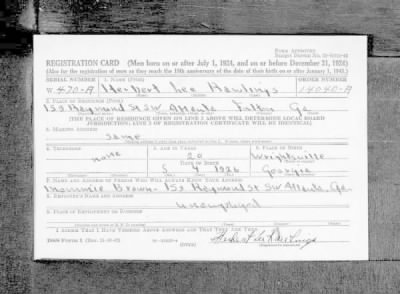 REGISTRATION CARD (Men born on or after July 1, 1924, and on or before December 31, 1924)
(Also for the registration of men as they reach the 18th anniversary of the date of their birth on or after January 1, 1943.)
SERIAL NUMBER 1. NAME (Print) ORDER NUMBER
W 420-A Herbert Lee Rawlings 14040-A
2. PLACE OF RESIDENCE (Print)
153 Haymond St SW Atlanta Fulton Ga
[THE PLACE OF RESIDENCE GIVEN ON LINE 2 ABOVE WILL DETERMINE LOCAL BOARD
JURISDICTION; LINE 2 OF REGISTRATION CERTIFICATE WILL BE IDENTICAL]
3. MAILING ADDRESS
Same
4. TELEPHONE 5. AGE IN YEARS 6. PLACE OF BIRTH
none 20 Wrightsville
DATE OF BIRTH
5 4 1926 Georgia
7. NAME AND ADDRESS OF PERSON WHO WILL ALWAYS KNOW YOUR ADDRESS
Mammie Brown- 153 Haymond St SW Atlanta, Ga.
8. EMPLOYER'S NAME AND ADDRESS
unemployed
9. PLACE OF EMPLOYMENT OR BUSINESS
I AFFIRM THAT I HAVE VERIFIED ABOVE ANSWERS AND THAT THEY ARE TRUE.
DSS Form 1 (OVER) Herbert Lee Rawlings